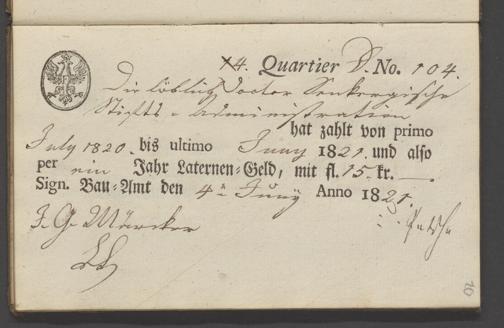 14. Quartier D. No. 104.
Die löblich Doctor Senkenbergische
Stifts-Administration
hat zahlt von primo
July 1820. bis ultimo Juny 1821. und also
per ein Jahr Laternen-Geld, mit fl. 15. kr. —.
Sign. Bau-Amt den 4n Juny Anno 1821.
J. G. Märcker
20